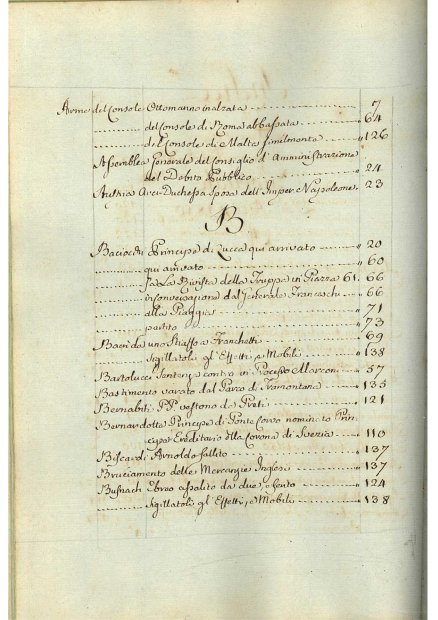 Arme del Console Ottomanno inalzata 7
del Console di Roma abbassata " 64
del Console di Malta similmente " 126
Assemblea Generale del Consiglio d'Amministrazione
del Debito Pubblico " 24
Austria Arci-Duchessa sposa dell'Imper. Napoleone " 23
B
Baciochi Principe di Lucca qui arrivato " 20
qui arrivato " 60
fa La Rivista della Truppa in Piazza 61. " 66
in conversazione dal Generale Franceschi " 66
alla Piaggia " 71
partito " 73
uno Schiaffo a Franchetti " 69
Sigillatoli gl'Effetti, e Mobili " 138
Bartolucci Sentenza contro in Processo Marconi " 57
Bastimento varato dal Parco di Tramontana " 135
Bernabiti PP. vestono da Preti " 121
Bernardotte Principe di Ponte Corvo nominato Prin-
cipe Ereditario alla Corona di Svezia " 110
Arnoldo fallito " 137
Bruciamento delle Mercanzie Inglesi " 137
Busnach Ebreo assolito da due, e ferito " 124
Sigillatoli gl'Effetti, e Mobili " 138